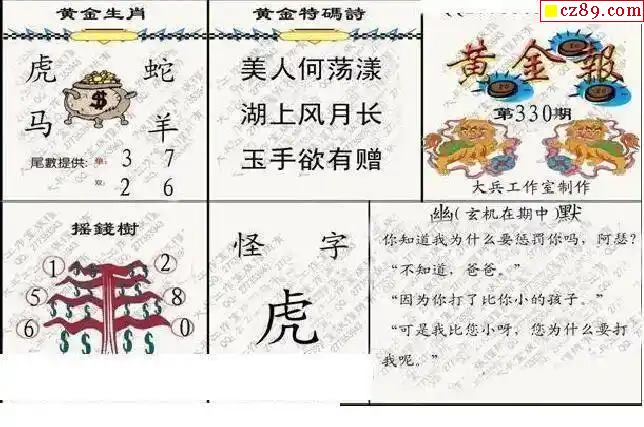 cz89.com
黄金生肖
虎 蛇
马 羊
尾數提供: 單: 3 7
双: 2 6
黄金特碼詩
美人何荡漾
湖上风月长
玉手欲有赠
黄金報
第330期
大兵工作室制作
摇錢樹
1 2
5 8
6 0
怪 字
虎
幽(玄机在期中)默
你知道我为什么要惩罚你吗，阿瑟？
“不知道，爸爸。”
“因为你打了比你小的孩子。”
“可是我比您小呀，您为什么要打
我呢。”